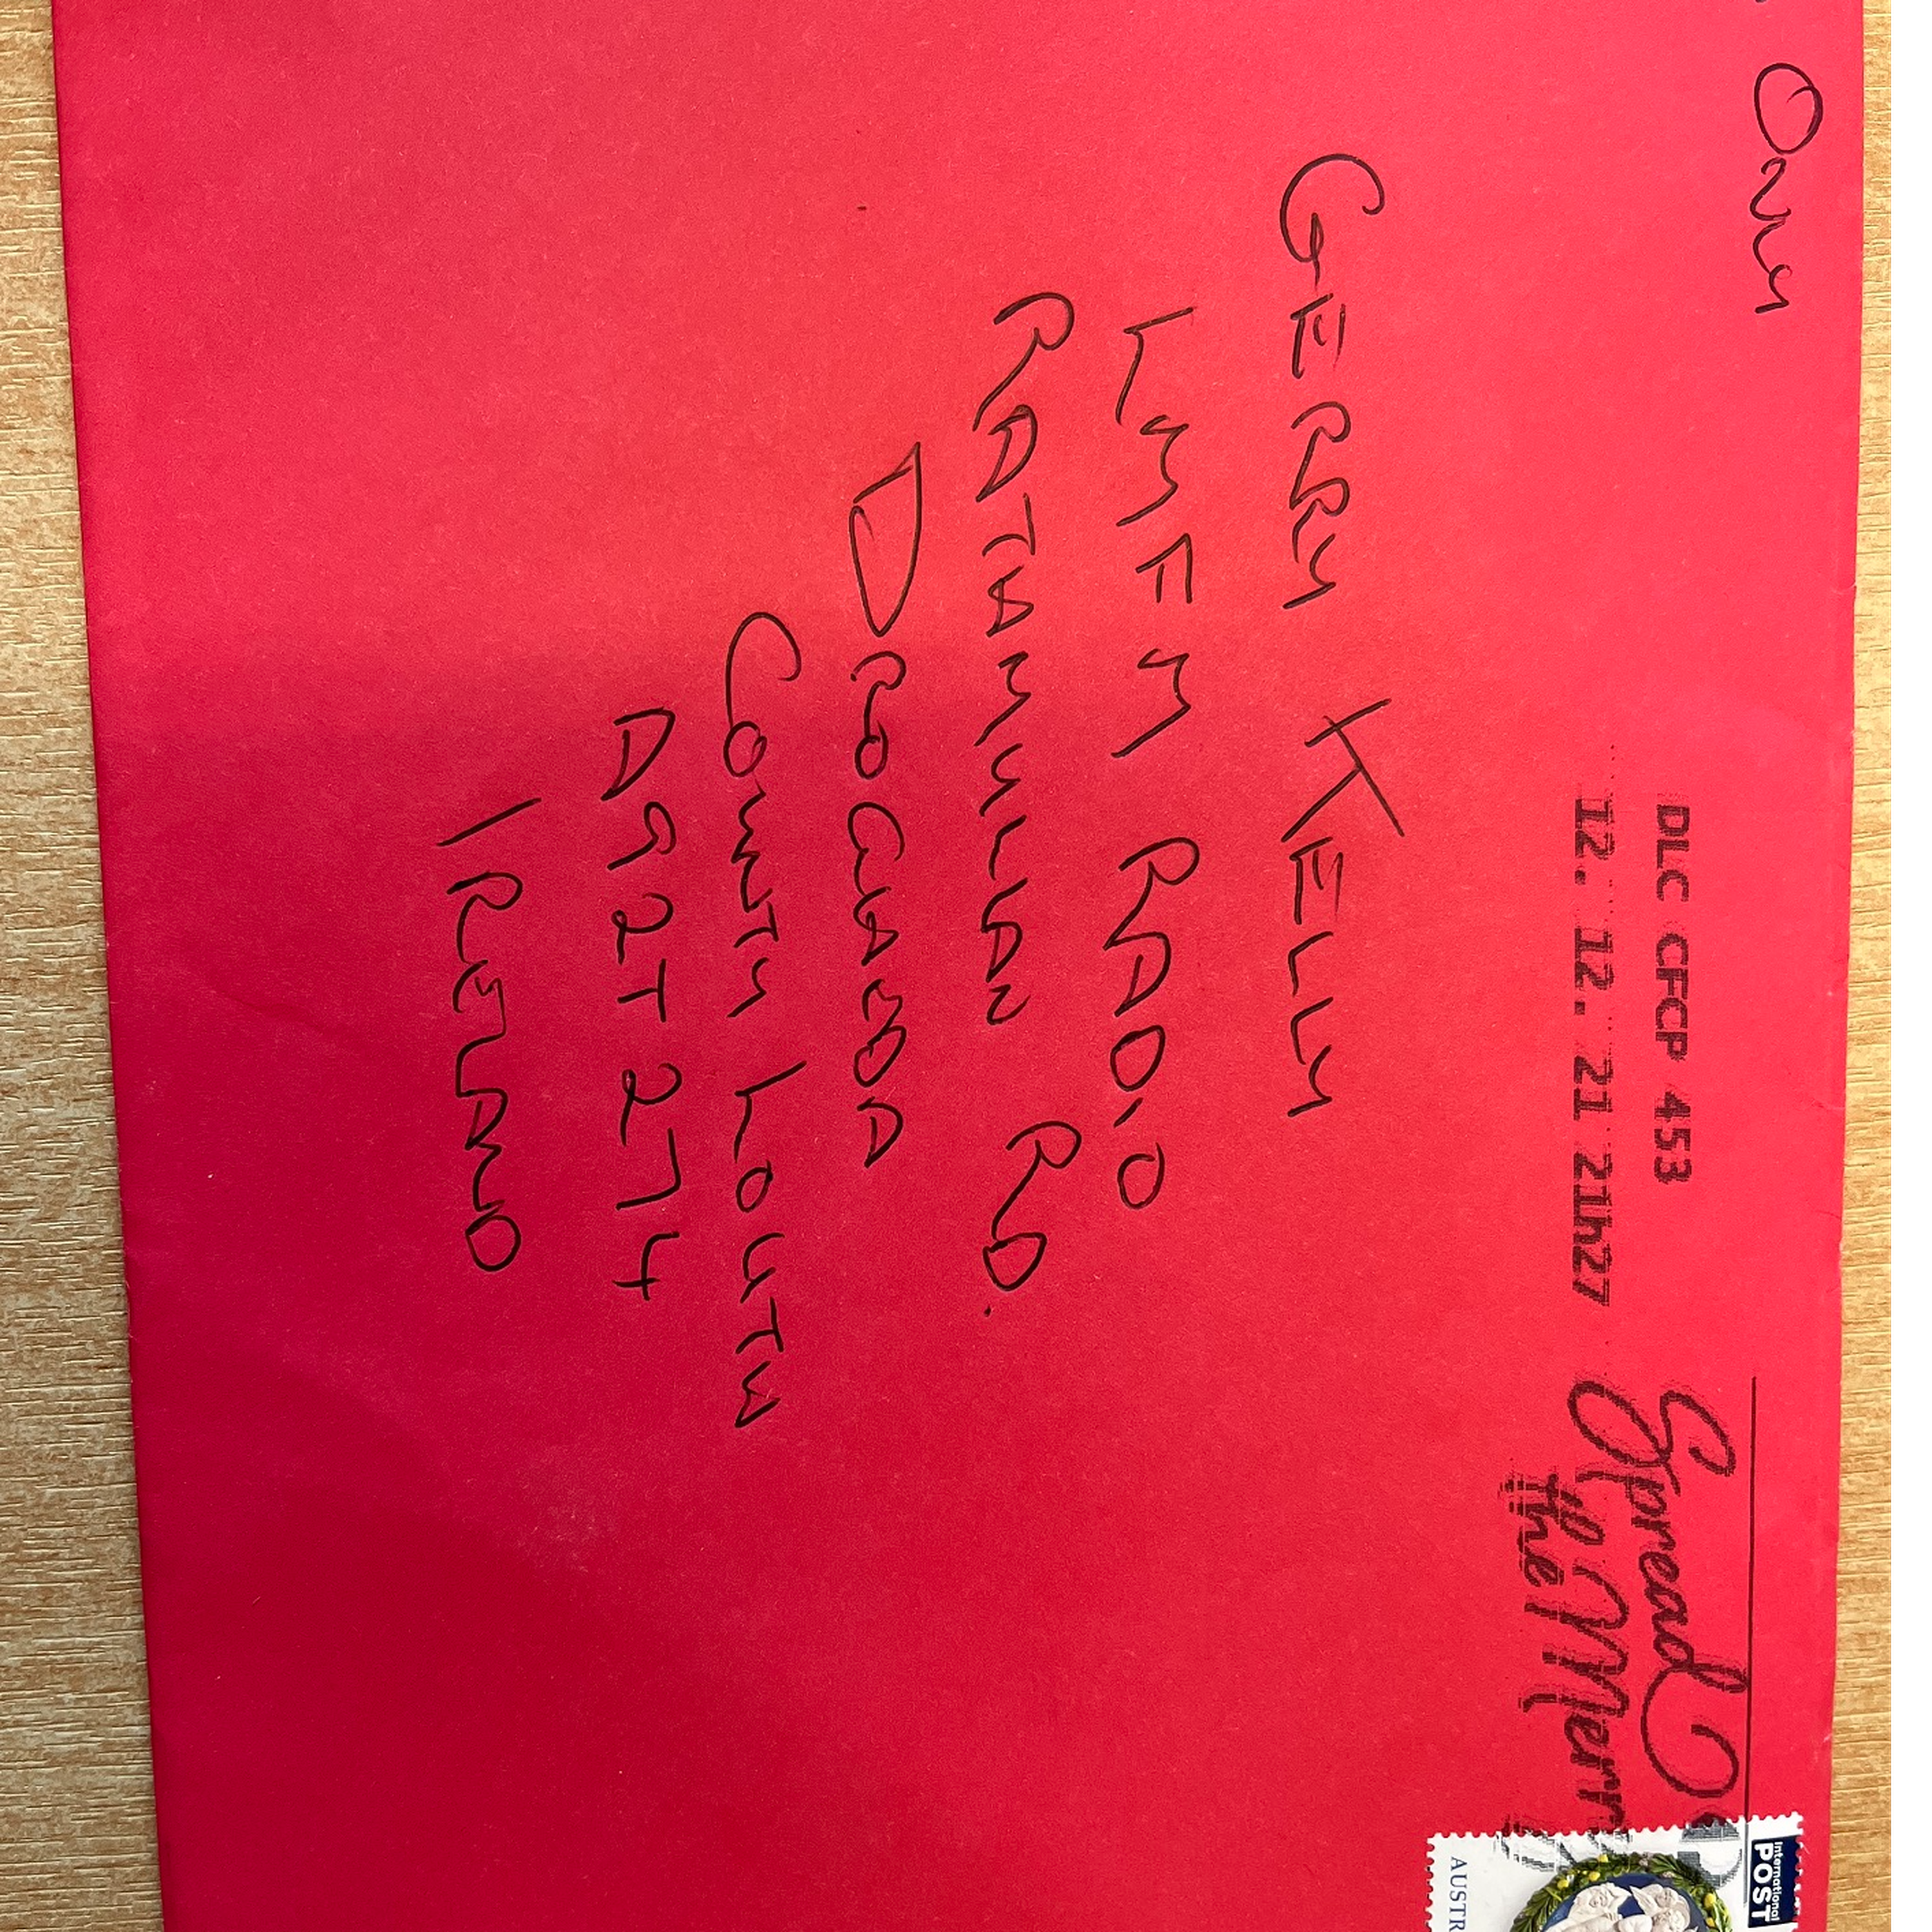 Only
DLC CFCP 453
12. 12. 21 21h27
Spread
the Merr
International
POST
AUSTR
GERRY KELLY
LMFM RADIO
RATHMULLAN RD.
DROGHEDA
COUNTY LOUTH
A92T274
IRELAND